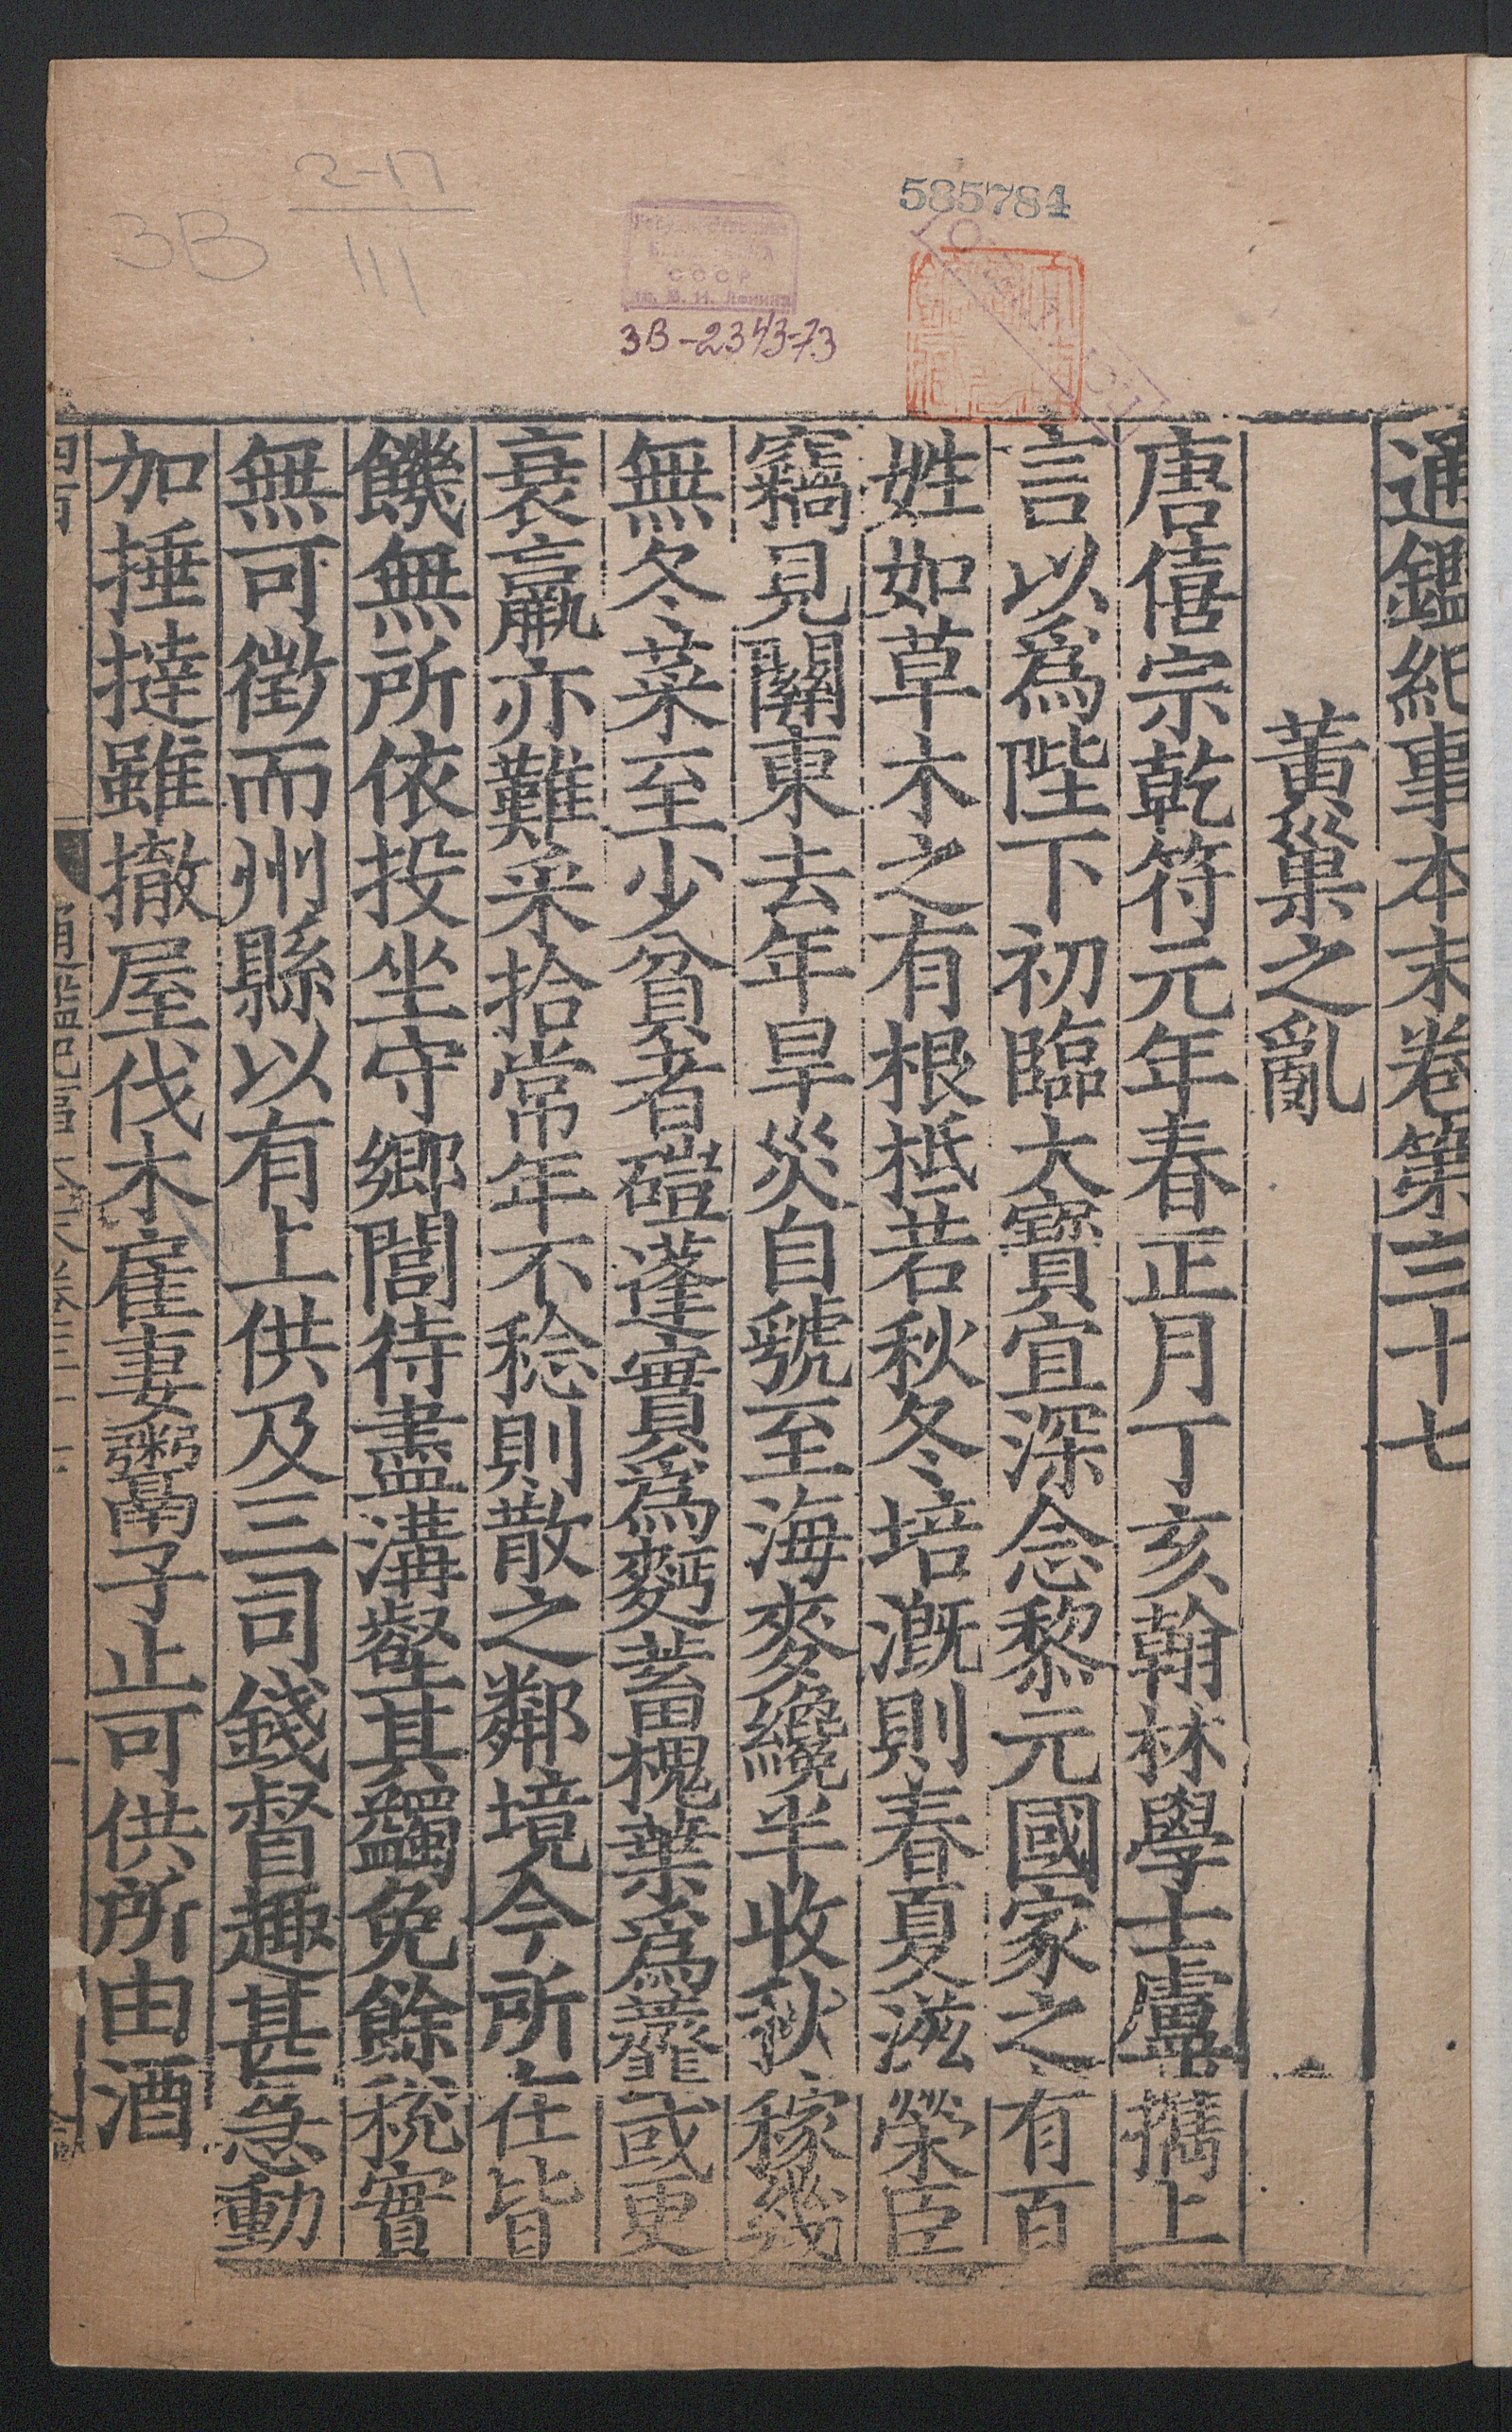 585784
2-17
3B
111
СССР
3В-2343-73
通鑑紀事本末卷第三十七
黃巢之亂
唐僖宗乾符元年春正月丁亥翰林學士盧攜上
言以爲陛下初臨大寶宜深念黎元國家之有百
姓如草木之有根柢若秋冬培溉則春夏滋榮臣
竊見關東去年旱災自虢至海麥纔半收秋稼幾
無冬菜至少貧者磑蓬實爲麪蓄槐葉爲虀或更
衰羸亦難采拾常年不稔則散之鄰境今所在皆
饑無所依投坐守鄉閭待盡溝壑其蠲免餘稅實
無可徵而州縣以有上供及三司錢督趣甚急動
加捶撻雖撤屋伐木雇妻鬻子止可供所由酒